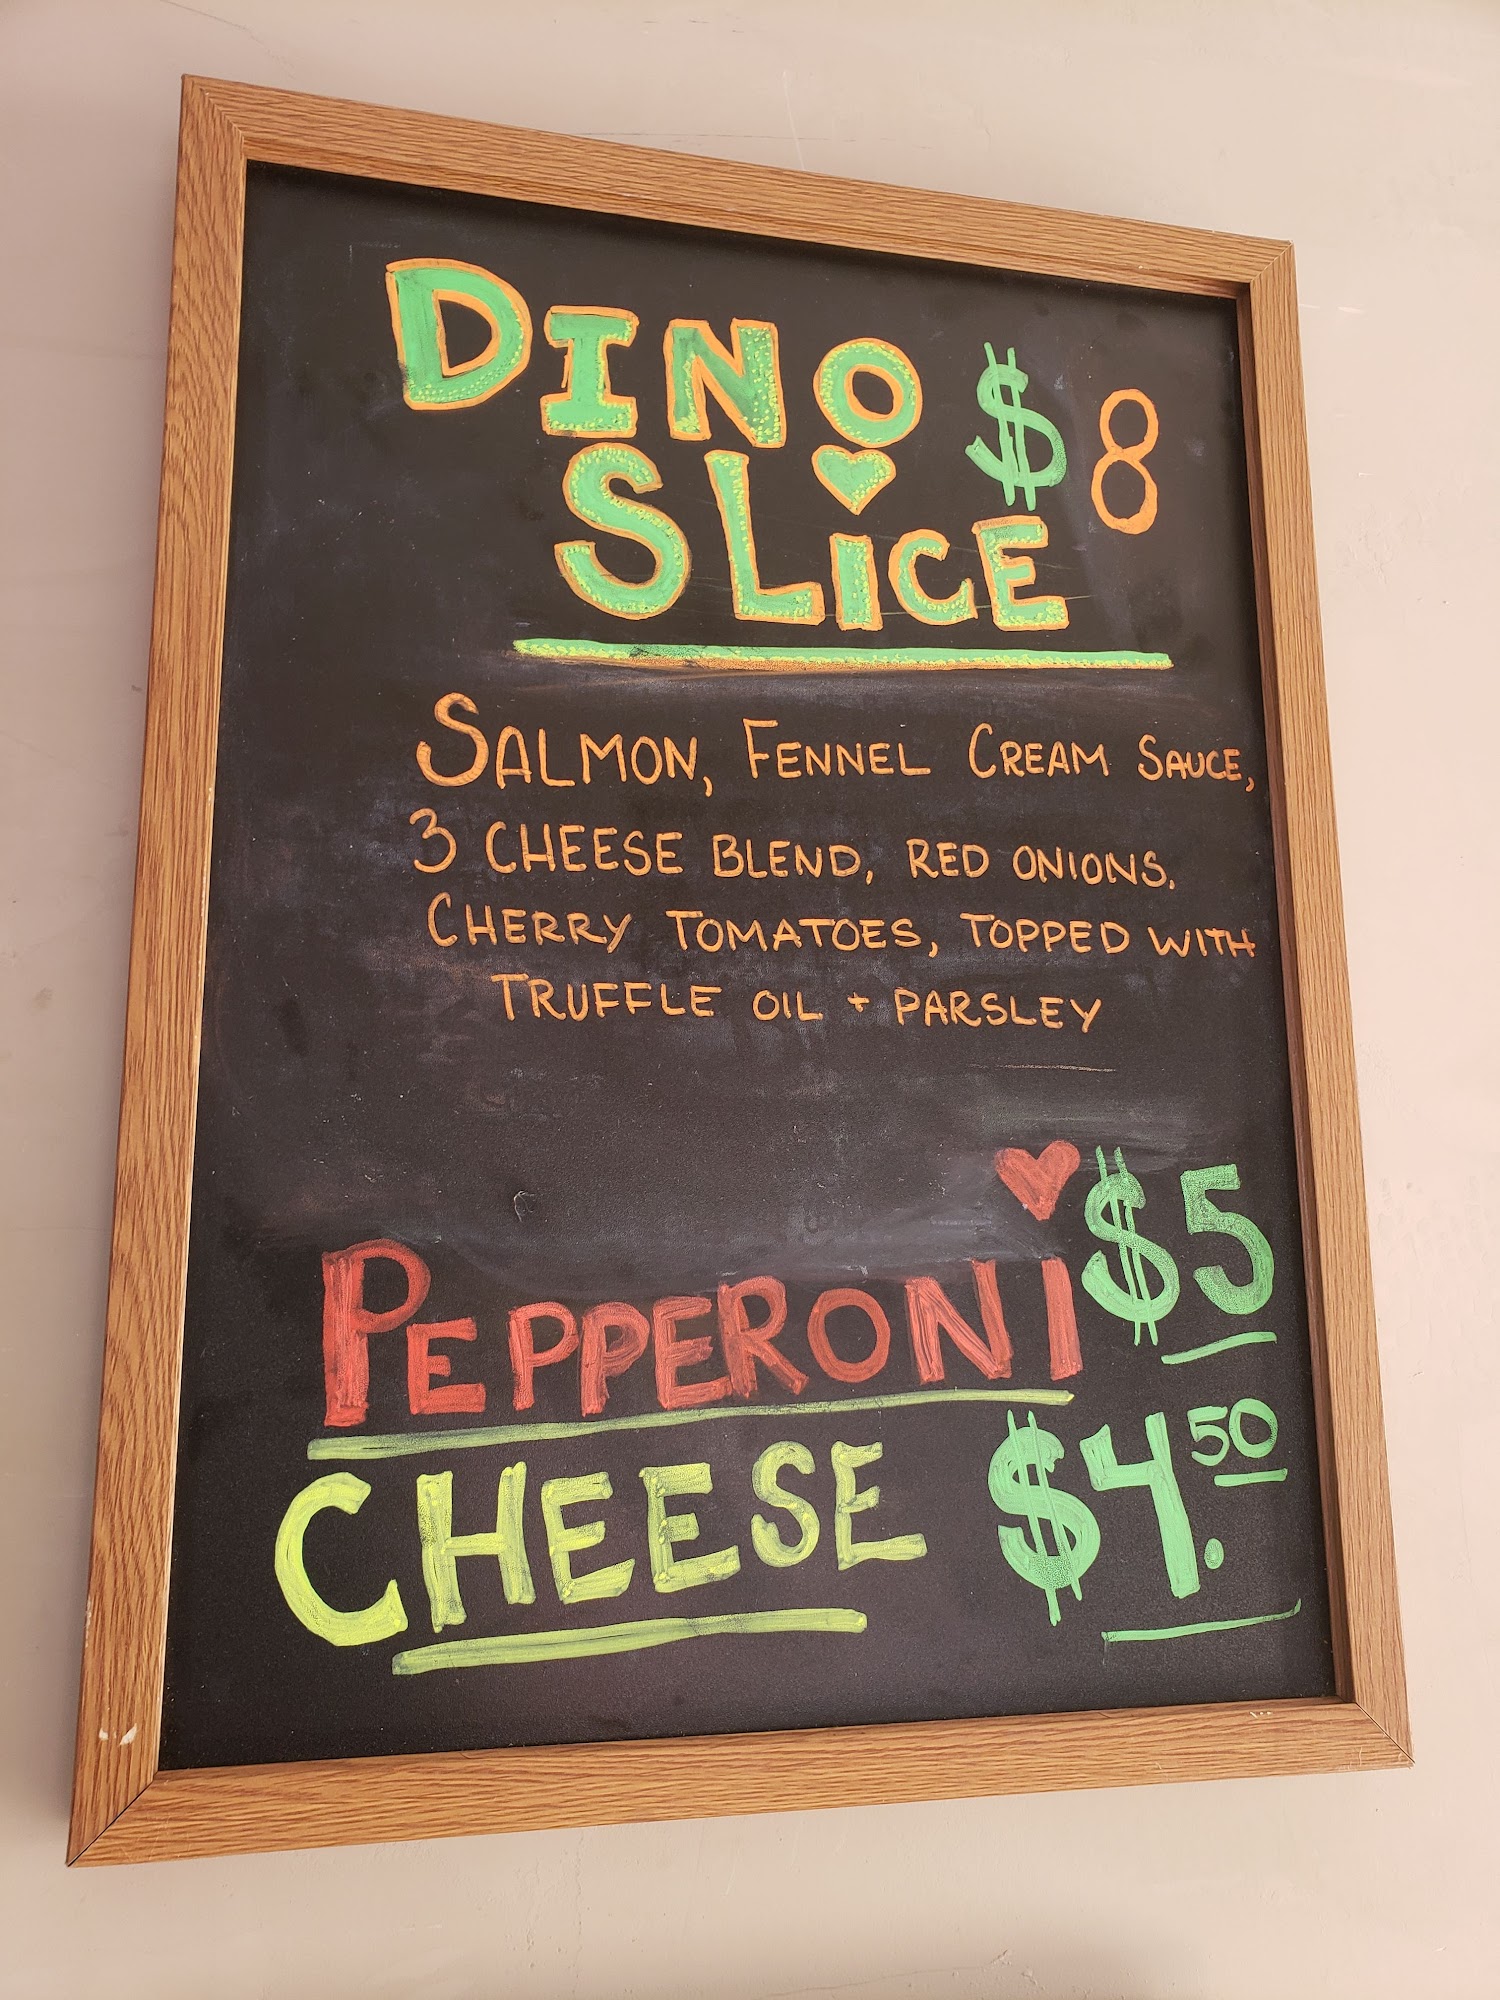 DINO $8
SLiCE
SALMON, FENNEL CREAM SAUCE,
3 CHEESE BLEND, RED ONIONS,
CHERRY TOMATOES, TOPPED WITH
TRUFFLE OIL + PARSLEY
PEPPERONI $5
CHEESE $4.50